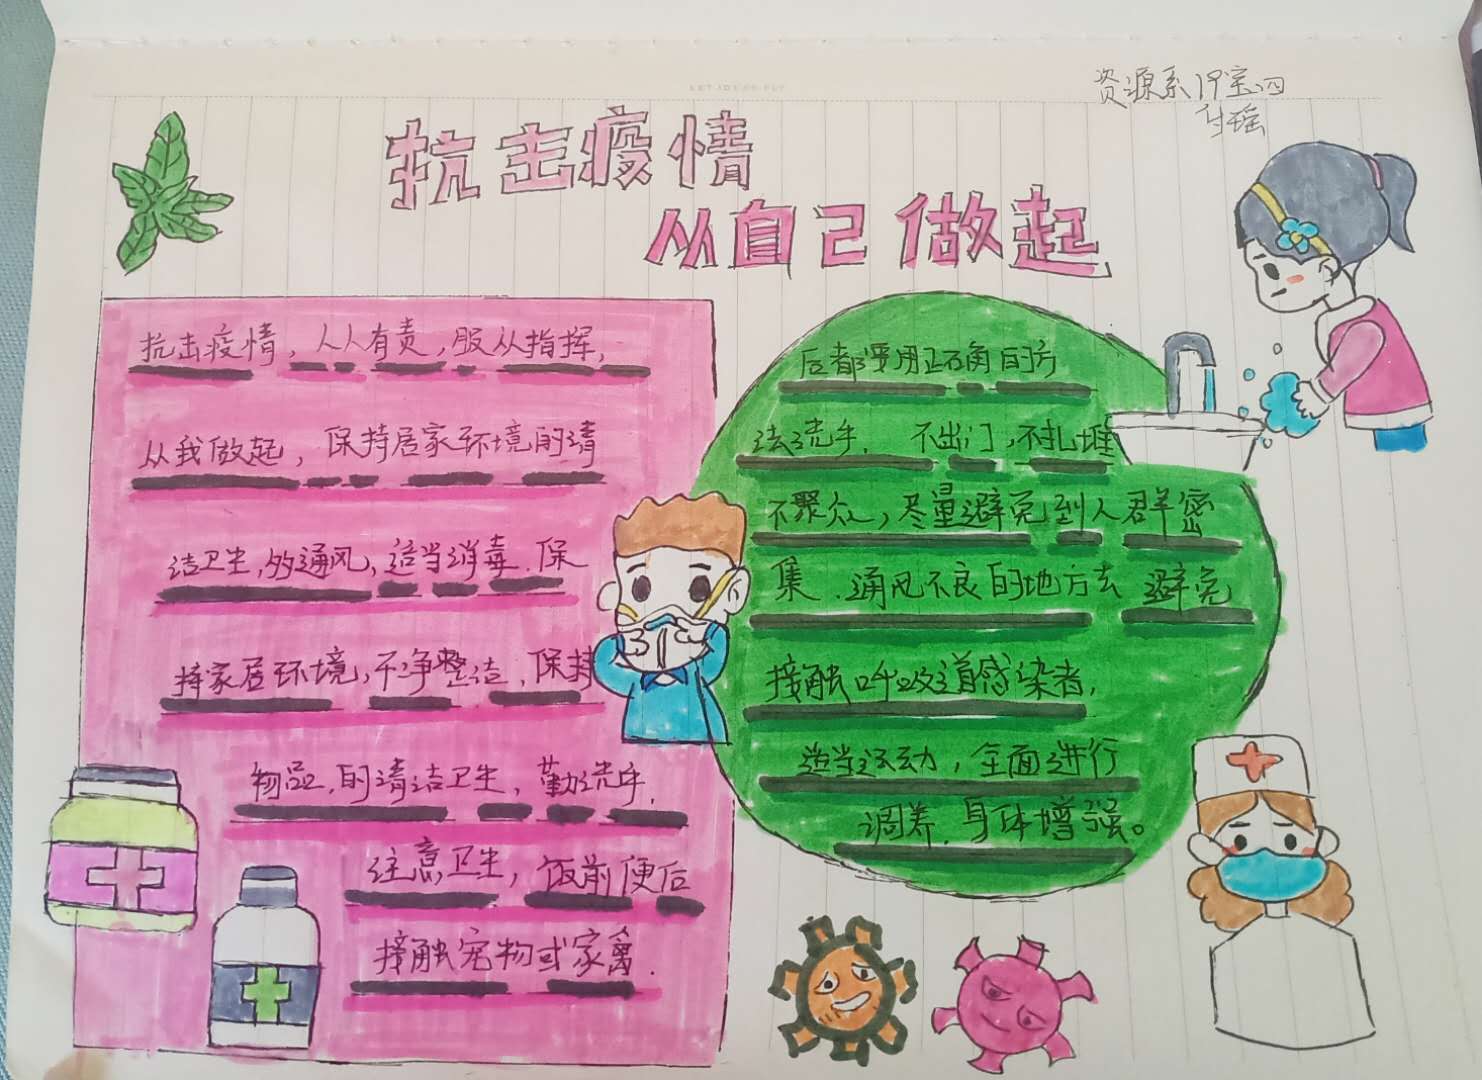 资源系19宝四
付瑶
抗击疫情
从自己做起
抗击疫情，人人有责，服从指挥，
从我做起，保持居家环境的清
洁卫生，多通风，适当消毒．保
持家居环境，干净整洁，保持
物品．的清洁卫生，勤洗手，
注意卫生，饭前便后
接触宠物或家禽．
后都要用正确的方
法洗手．不出门，不扎堆
不聚众，尽量避免到人群密
集．通风不良的地方去 避免
接触呼吸道感染者，
适当运动，全面进行
调养．身体增强。